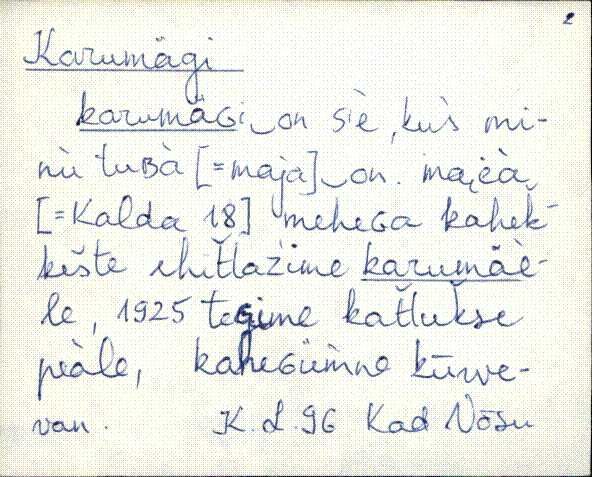 2
Karumägi
karumäɢi‿on sìe, kùs mi-
nù tuʙà [=maja]‿on. ma
[=Kalda 18] meheɢa kahek-
kešte ehitlažime karumäè-
le, 1925 teɢime katlukse
peàle, kaheɢümne kūwe-
van. K.L. 96 Kad Nõsu